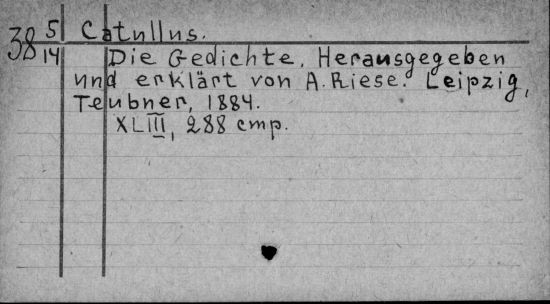 38 5 Catullus.
14 Die Gedichte. Herausgegeben
und erklärt von A. Riese. Leipzig,
Teubner, 1884.
XLIII, 288 cmp.